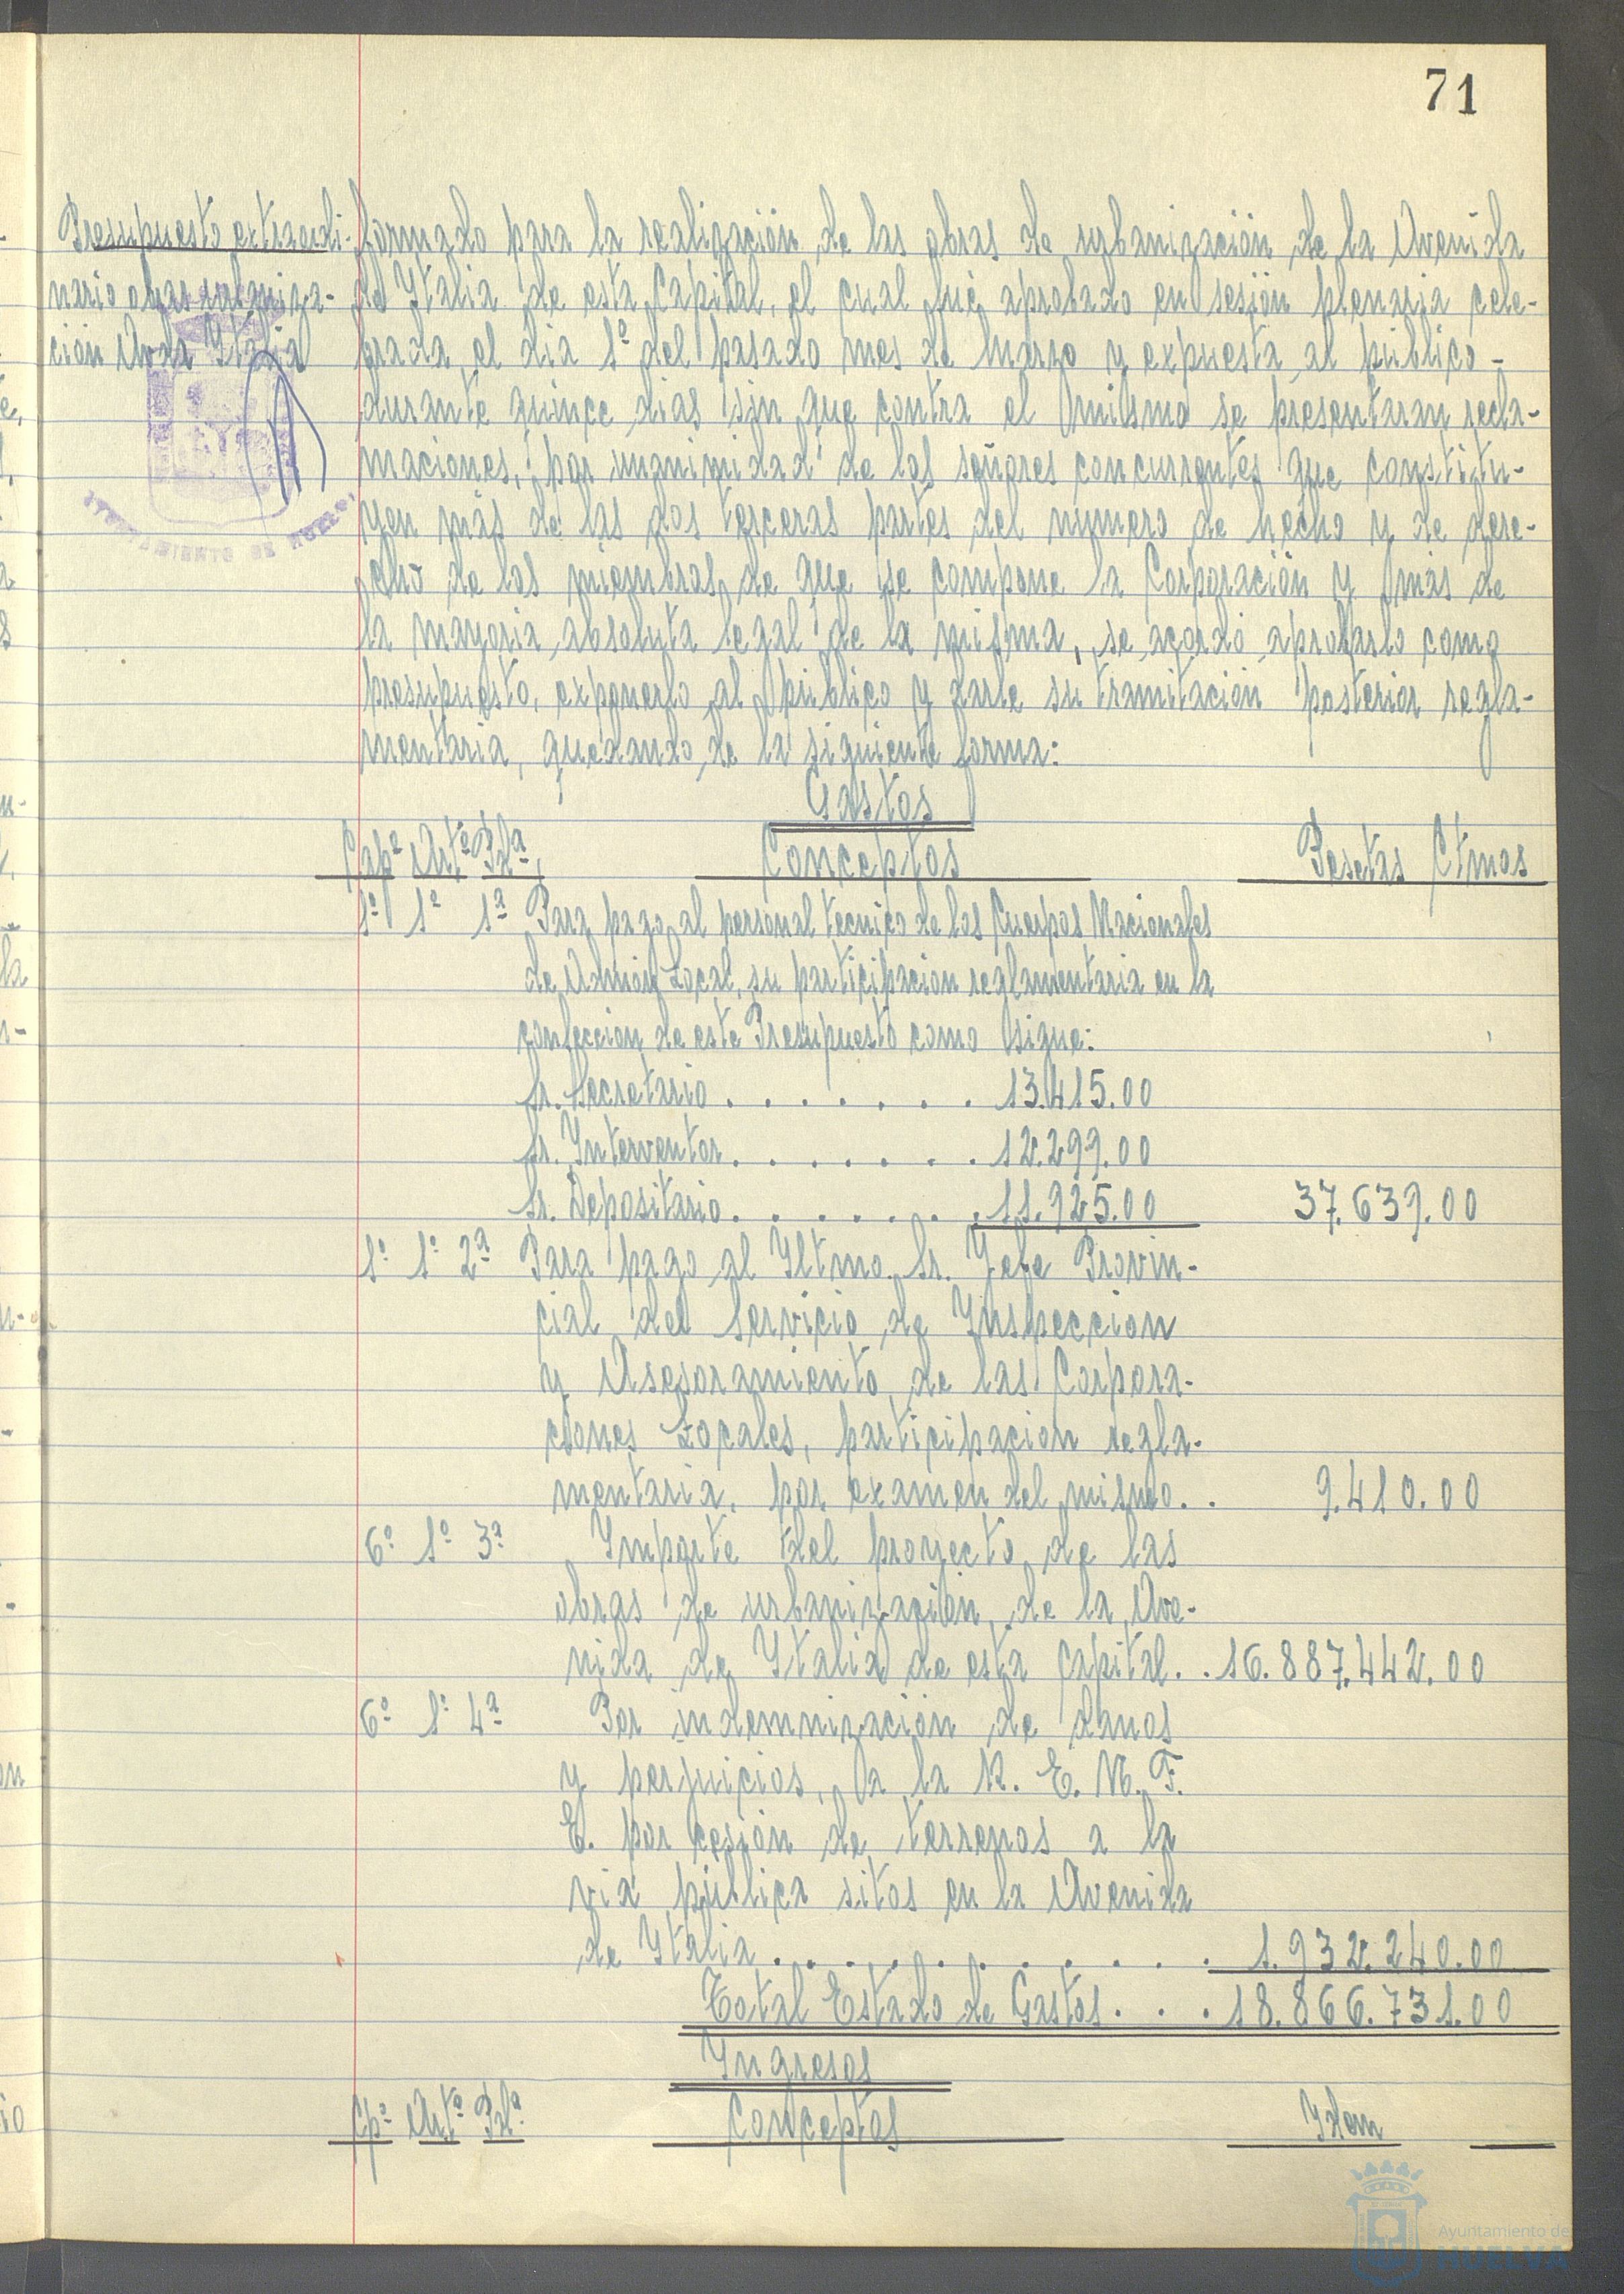 71
Presupuesto extraordi-
nario obras urbaniza-
ción Avda Italia
AYUNTAMIENTO DE HUELVA
formado para la realización de las obras de urbanización de la Avenida
de Italia de esta Capital, el cual fué aprobado en sesión plenaria cele-
brada el dia 1º del pasado mes de Marzo y expuesta al público -
durante quince dias sin que contra el mismo se presentaran recla-
maciones, por unanimidad de los señores concurrentes que constitu-
yen más de las dos terceras partes del numero de hecho y de dere-
cho de los miembros de que se compone la Corporación y más de
la mayoria absoluta legal de la misma, se acordó aprobarlo como
presupuesto, exponerlo al público y darle su tramitación posterior regla-
mentaria, quedando de la siguiente forma:
Gastos
Capº Artº Pdª Conceptos Pesetas Ctmos
1º 1º 1ª Para pago al personal tecnico de los Cuerpos Nacionales
de Admón Local, su participacion reglamentaria en la
confeccion de este Presupuesto como sigue:
Sr. Secretario . . . . . . . 13.415.00
Sr. Interventor . . . . . . . 12.299.00
Sr. Depositario . . . . . . . 11.925.00 37.639.00
1º 1º 2ª Para pago al Iltmo. Sr. Jefe Provin-
cial del Servicio de Inspeccion
y Asesoramiento de las Corpora-
ciones Locales, participacion regla-
mentaria, por examen del mismo. . 9.410.00
6º 1º 3ª Importe del proyecto de las
obras de urbanización de la Ave-
nida de Italia de esta Capital. . 16.887.442.00
6º 1º 4ª Por indemnización de danos
y perjuicios, a la R. E. N. F.
E. por cesión de terrenos a la
via pública sitos en la Avenida
de Italia . . . . . . . . . . . 1.932.240.00
Total Estado de Gastos. . . 18.866.731.00
Ingresos
Cpº Artº Pdª Conceptos Idem
Ayuntamiento de
HUELVA